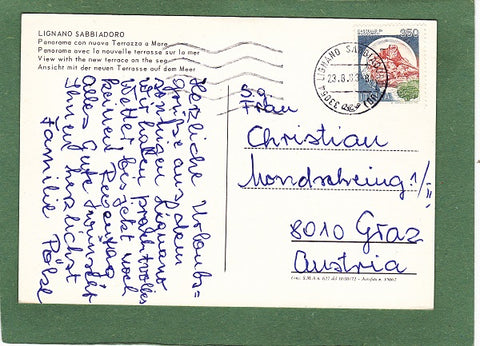 LIGNANO SABBIADORO
Panorama con nuova Terrazza a Mare
Panorama avec la nouvelle terrasse sur la mer
View with the new terrace on the sea
Ansicht mit der neuen Terrasse auf dem Meer
Herzliche Urlaubs=
grüße aus dem
sonnigen Lignano
wir haben prachtvolles
Wetter bis jetzt noch
keinen Regentag
alles Gute wünscht
Ihnen herzlichst
Familie
350
LIGNANO SABBIADORO
23.8.83
33054
(UD)
S.g.
Frau
Christian
Mondscheing. 1/II
8010 Graz
Austria